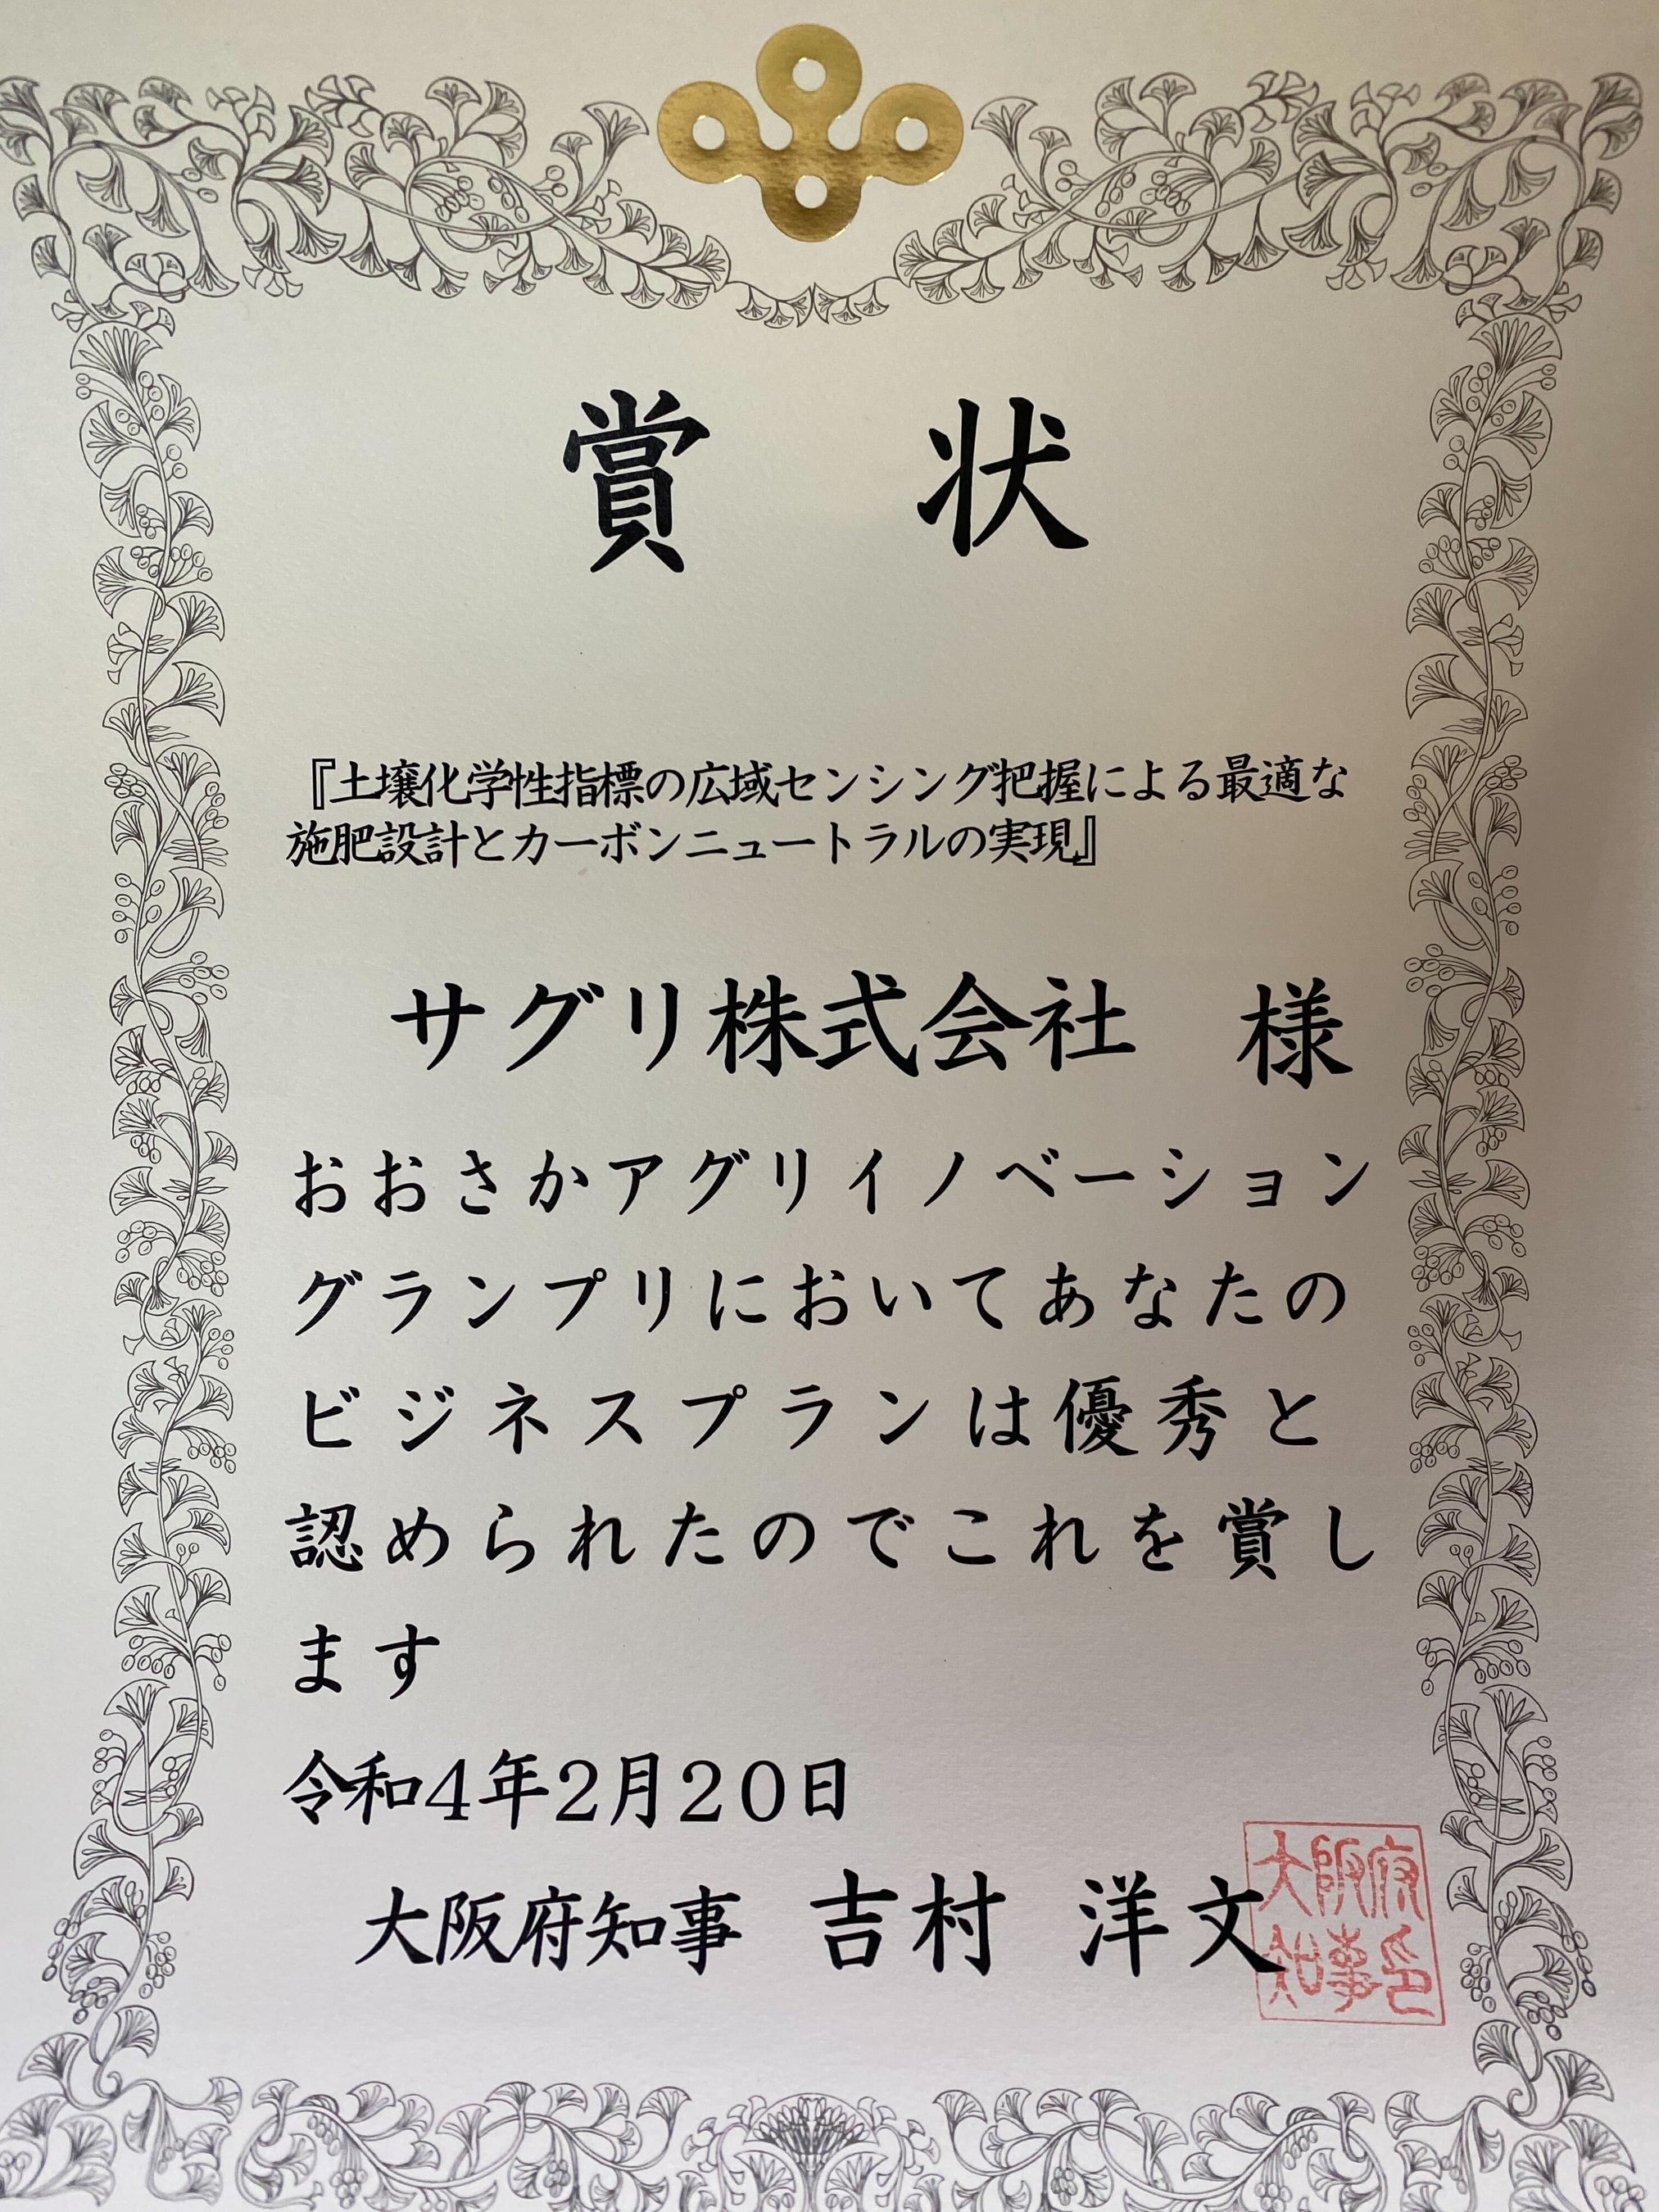 賞　状
『土壌化学性指標の広域センシング把握による最適な
施肥設計とカーボンニュートラルの実現』
サグリ株式会社　様
おおさかアグリイノベーション
グランプリにおいてあなたの
ビジネスプランは優秀と
認められたのでこれを賞し
ます
令和4年2月20日
大阪府知事　吉村　洋文
大阪府
知事印